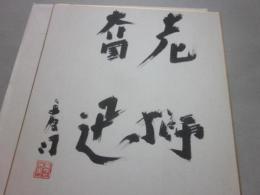 老獅
奮迅